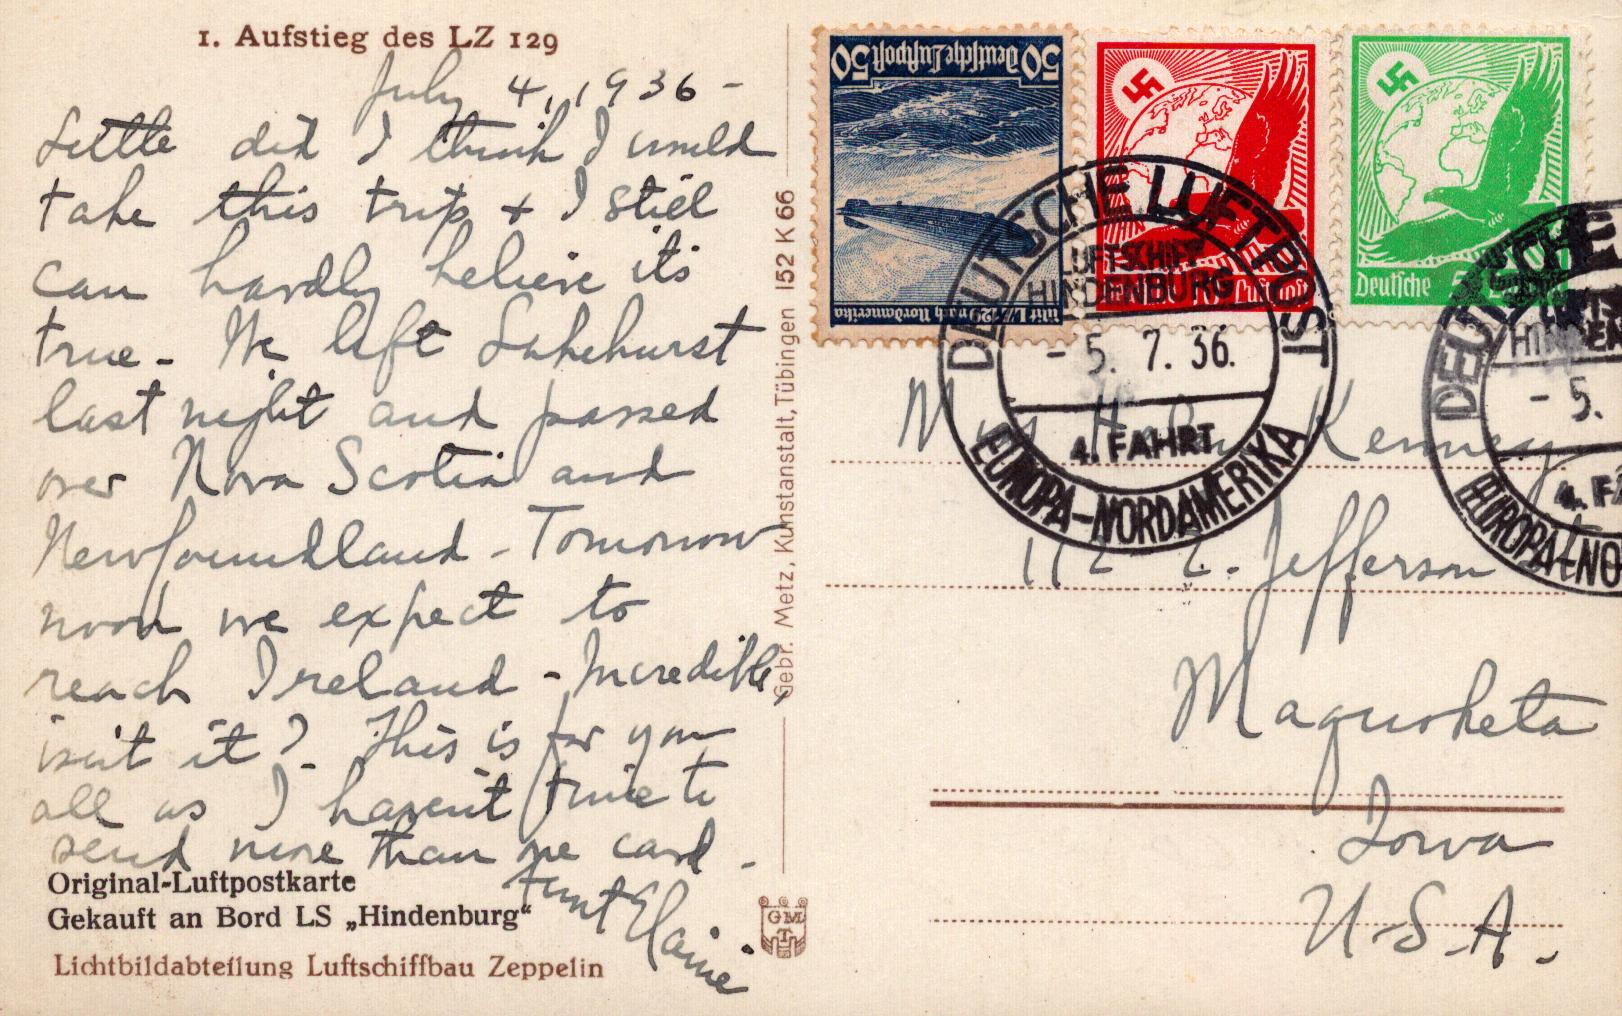 1. Aufstieg des LZ 129
July 4, 1936 -
Little did I think I would
take this trip & I still
can hardly believe its
true - We left Lakehurst
last night and passed
over Nova Scotia and
Newfoundland - Tomorrow
noon we expect to
reach Ireland - Incredible,
isn't it? This is for you
all as I haven't time to
send more than one card -
Aunt Elaine
Original-Luftpostkarte
Gekauft an Bord LS „Hindenburg“
Lichtbildabteilung Luftschiffbau Zeppelin
Gebr. Metz, Kunstanstalt, Tübingen 152 K 66
GMT
50 Deutsche Luftpost 50
mit LZ 129 nach Nordamerika
Luftpost
Deutsche
DEUTSCHE LUFTPOST
LUFTSCHIFF
HINDENBURG
- 5. 7. 36.
4. FAHRT
EUROPA-NORDAMERIKA
DEUTSCHE
- 5.
4. FA
EUROPA-NO
Miss Kenney
Jefferson
Maquoketa
Iowa
U.S.A.